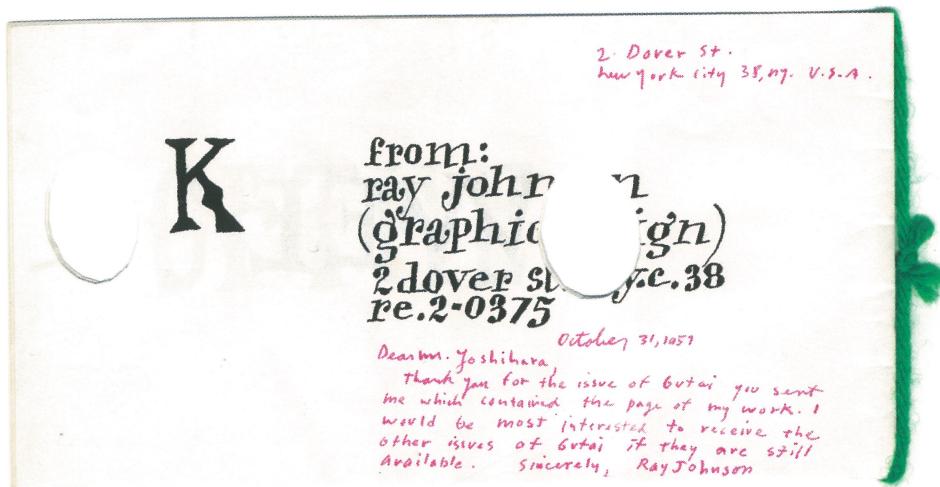 2 Dover St.
New york city 38, ny. U.S.A.
K
from:
ray john n
(graphic ign)
2 dover st y.c. 38
re.2-0375
October 31, 1957
Dear Mr. Yoshihara,
Thank you for the issue of Gutai you sent
me which contained the page of my work. I
would be most interested to receive the
other issues of Gutai if they are still
available. Sincerely, Ray Johnson